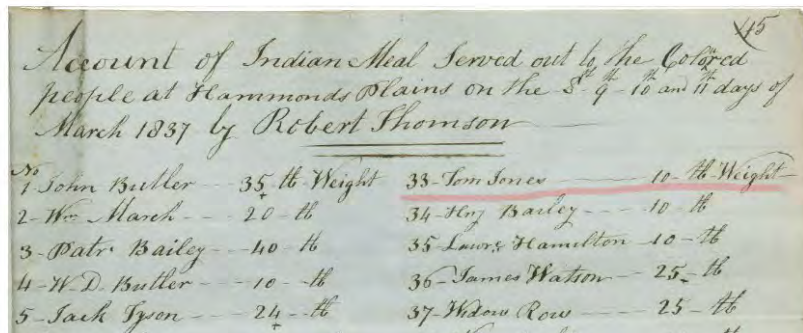 45
Account of Indian Meal Served out to the Colored
people at Hammonds Plains on the 8th 9th 10th and 11th days of
March 1837 by Robert Thomson
No
1 John Butler - - 35 - lb Weight
2 - Wm March - - - 20 - lb
3 - Patr. Bailey - - 40 - lb
4 - W. D. Butler - - - 10 - - lb
5 - Jack Tyson - - - 24 - lb
33 - Tom Jones - - - 10 - lb Weight
34 - Hny Bailey - - - - 10 - lb
35 - Lawrs Hamilton - 10 - lb
36 - James Watson - - 25 - lb
37 - Widow Row - - - 25 - lb